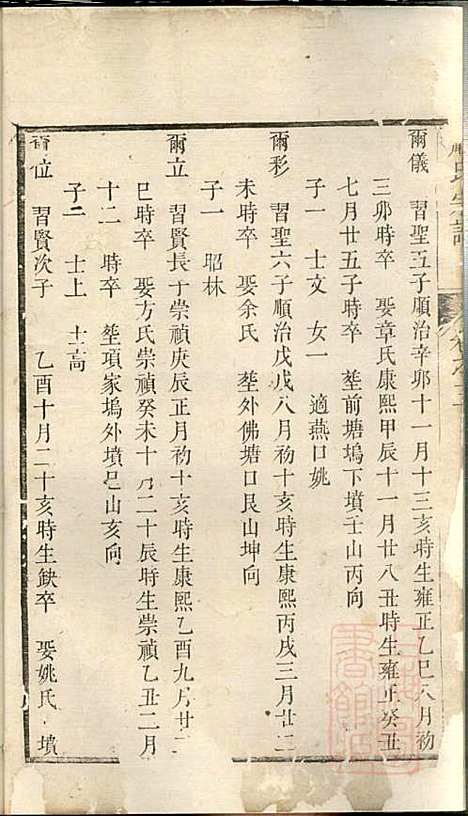 爾儀 習聖五子順治辛卯十一月十三亥時生雍正乙巳八月初
三卯時卒 娶章氏康熙甲辰十一月廿八丑時生雍正癸丑
七月廿五子時卒 塟前塘塢下墳壬山丙向
子一 士文 女一 適燕口姚
爾彩 習聖六子順治戊戌八月初十亥時生康熙丙戌三月廿二
未時卒 娶余氏 塟外佛塘口艮山坤向
子一 昭林
爾立 習賢長子崇禎庚辰正月初十亥時生康熙乙酉九月廿二
巳時卒 娶方氏崇禎癸未十月二十辰時生崇禎乙丑二月
十二 時卒 塟項家塢外墳巳山亥向
子二 士上 士高
爾位 習賢次子 乙酉十月二十亥時生缺卒 娶姚氏 墳